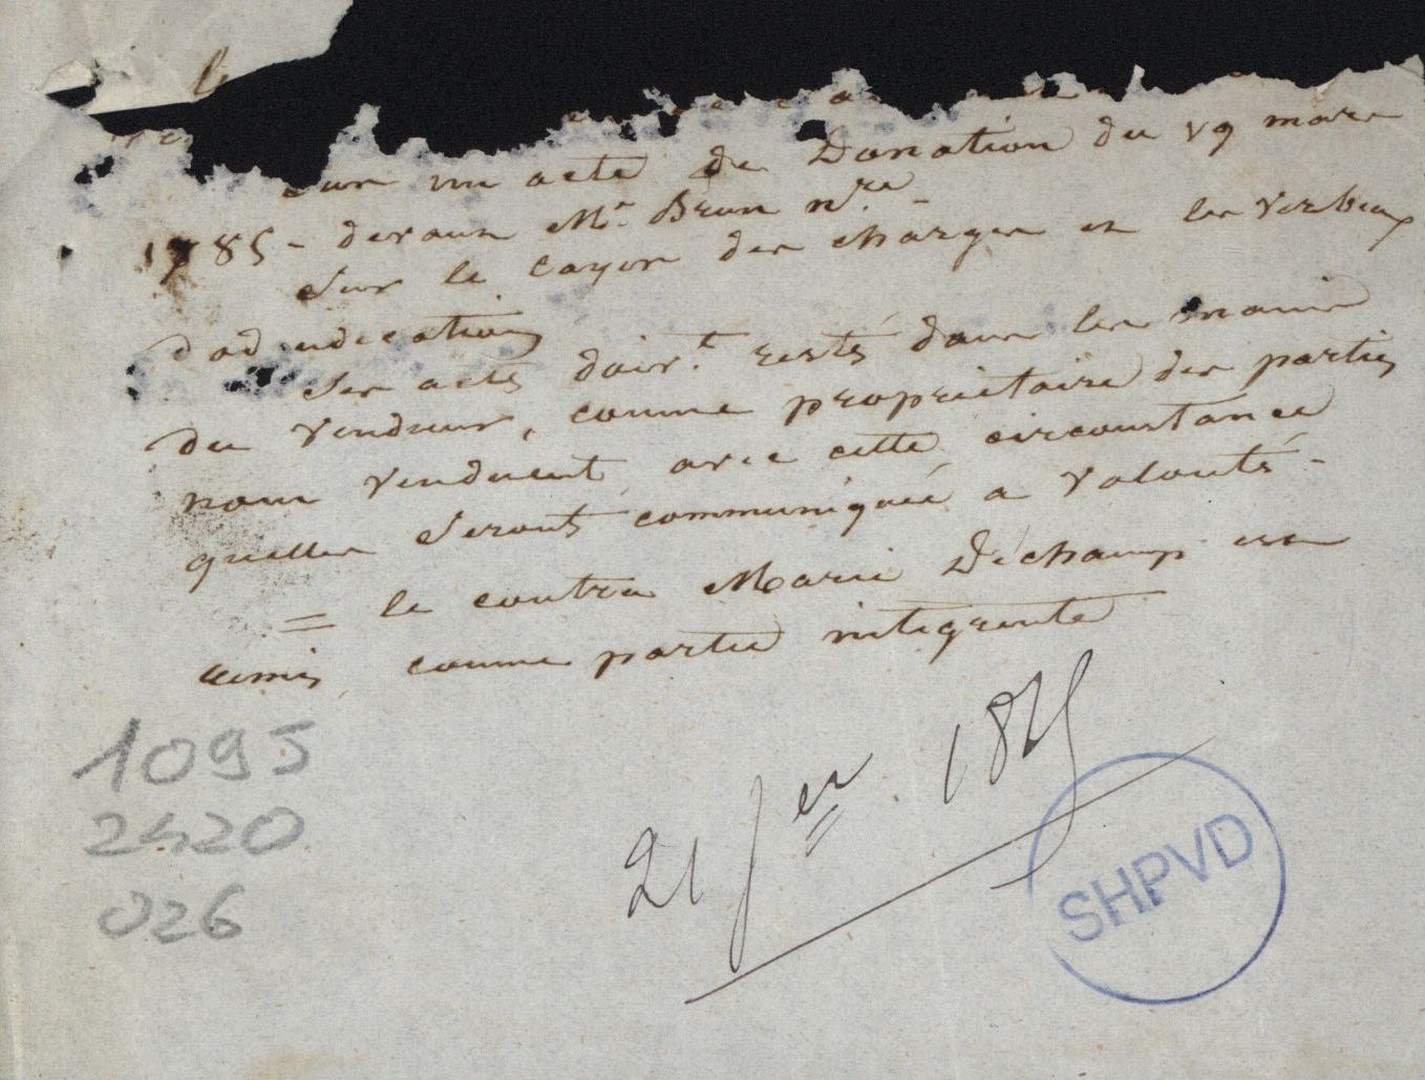 Sur un acte de Donation du 19 mars
1785 - devant Me. Brun nre. -
Sur le Cayer des charges et les Verbeaux
d'adjudication
Ses actes doivt. resté dans les mains
du Vendeur, comme proprietaire des parties
non Vendues avec cette circonstance
quelles Seront communiquéé a Volonté -
= le contra Marie Dechamp est
remis, comme partie integrente
21 Jer 1825
1095
2420
026
SHPVD